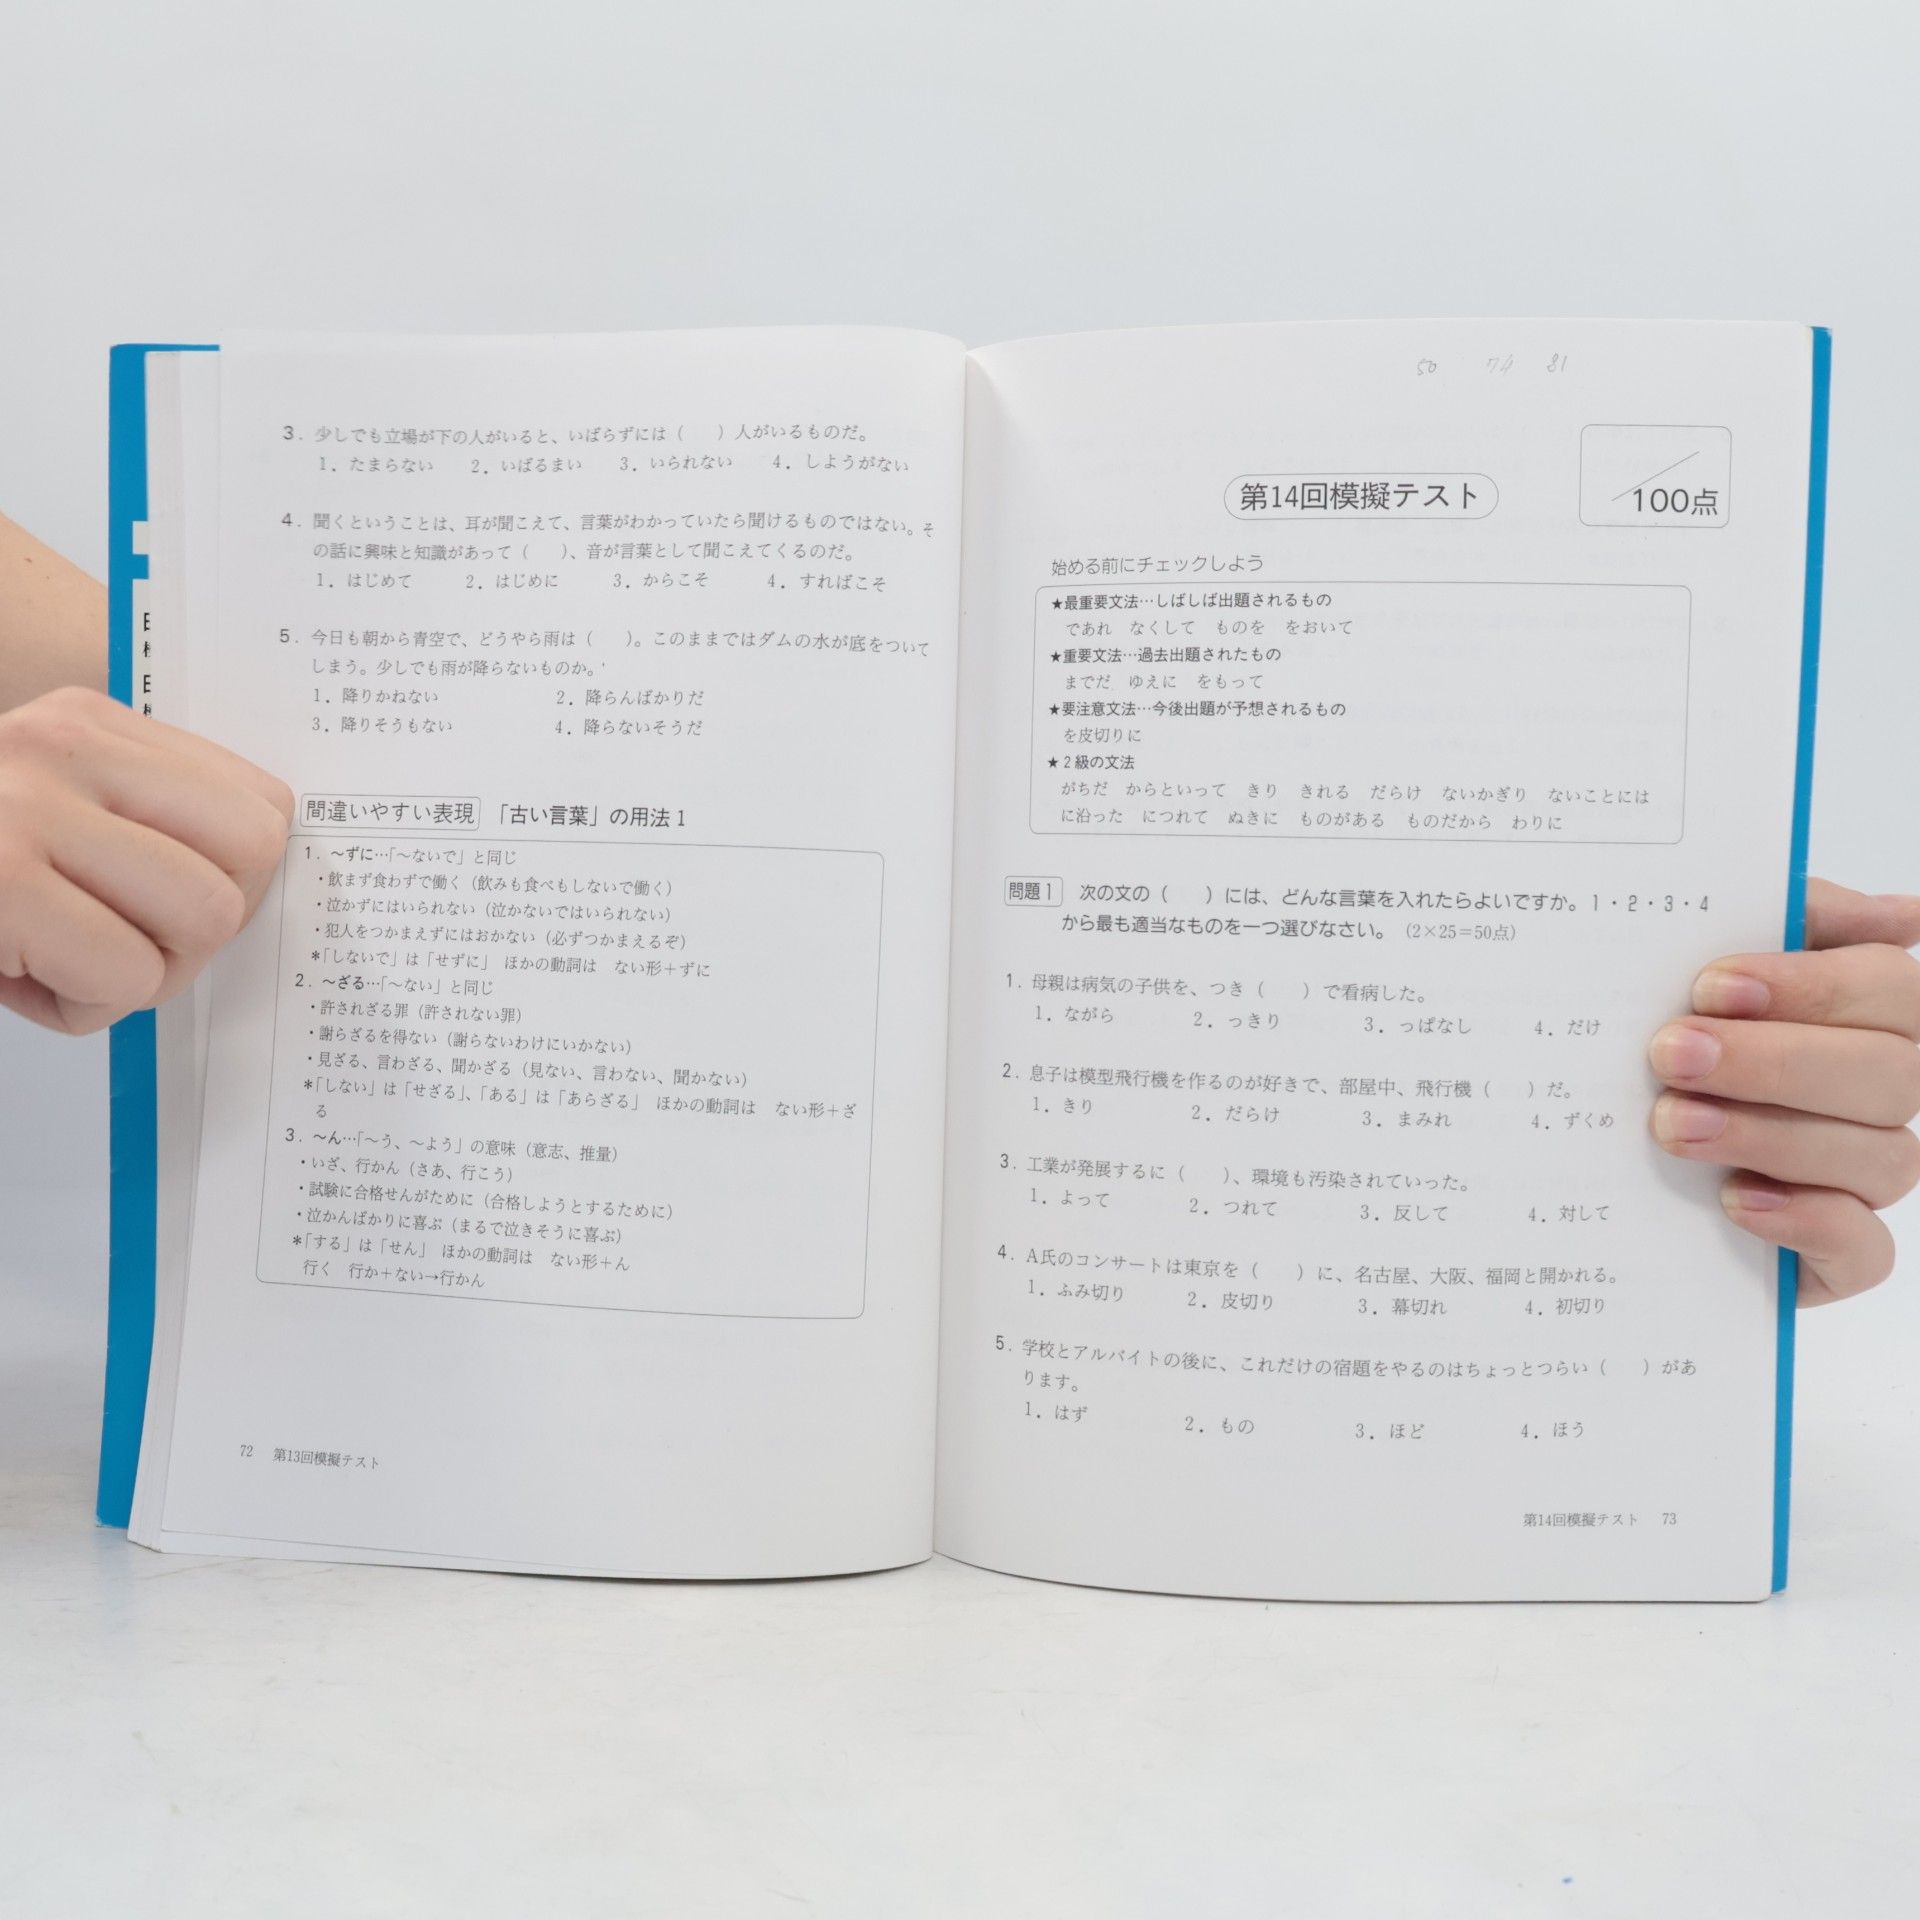 3. 少しでも立場が下の人がいると、いばらずには（　　）人がいるものだ。
1. たまらない　2. いばるまい　3. いられない　4. しようがない
4. 聞くということは、耳が聞こえて、言葉がわかっていたら聞けるものではない。そ
の話に興味と知識があって（　　）、音が言葉として聞こえてくるのだ。
1. はじめて　2. はじめに　3. からこそ　4. すればこそ
5. 今日も朝から青空で、どうやら雨は（　　）。このままではダムの水が底をついて
しまう。少しでも雨が降らないものか。
1. 降りかねない　2. 降らんばかりだ
3. 降りそうもない　4. 降らないそうだ
間違いやすい表現　「古い言葉」の用法1
1. ～ずに…「～ないで」と同じ
・飲まず食わずで働く（飲みも食べもしないで働く）
・泣かずにはいられない（泣かないではいられない）
・犯人をつかまえずにはおかない（必ずつかまえるぞ）
*「しないで」は「せずに」　ほかの動詞は　ない形＋ずに
2. ～ざる…「～ない」と同じ
・許されざる罪（許されない罪）
・謝らざるを得ない（謝らないわけにいかない）
・見ざる、言わざる、聞かざる（見ない、言わない、聞かない）
*「しない」は「せざる」、「ある」は「あらざる」　ほかの動詞は　ない形＋ざ
る
3. ～ん…「～う、～よう」の意味（意志、推量）
・いざ、行かん（さあ、行こう）
・試験に合格せんがために（合格しようとするために）
・泣かんばかりに喜ぶ（まるで泣きそうに喜ぶ）
*「する」は「せん」　ほかの動詞は　ない形＋ん
行く　行か＋ない→行かん
72　第13回模擬テスト
50　74　81
第14回模擬テスト
／100点
始める前にチェックしよう
★最重要文法…しばしば出題されるもの
であれ　なくして　ものを　をおいて
★重要文法…過去出題されたもの
までだ　ゆえに　をもって
★要注意文法…今後出題が予想されるもの
を皮切りに
★2級の文法
がちだ　からといって　きり　きれる　だらけ　ないかぎり　ないことには
に沿った　につれて　ぬきに　ものがある　ものだから　わりに
問題1　次の文の（　　）には、どんな言葉を入れたらよいですか。1・2・3・4
から最も適当なものを一つ選びなさい。（2×25＝50点）
1. 母親は病気の子供を、つき（　　）で看病した。
1. ながら　2. っきり　3. っぱなし　4. だけ
2. 息子は模型飛行機を作るのが好きで、部屋中、飛行機（　　）だ。
1. きり　2. だらけ　3. まみれ　4. ずくめ
3. 工業が発展するに（　　）、環境も汚染されていった。
1. よって　2. つれて　3. 反して　4. 対して
4. A氏のコンサートは東京を（　　）に、名古屋、大阪、福岡と開かれる。
1. ふみ切り　2. 皮切り　3. 幕切れ　4. 初切り
5. 学校とアルバイトの後に、これだけの宿題をやるのはちょっとつらい（　　）があ
ります。
1. はず　2. もの　3. ほど　4. ほう
第14回模擬テスト　73